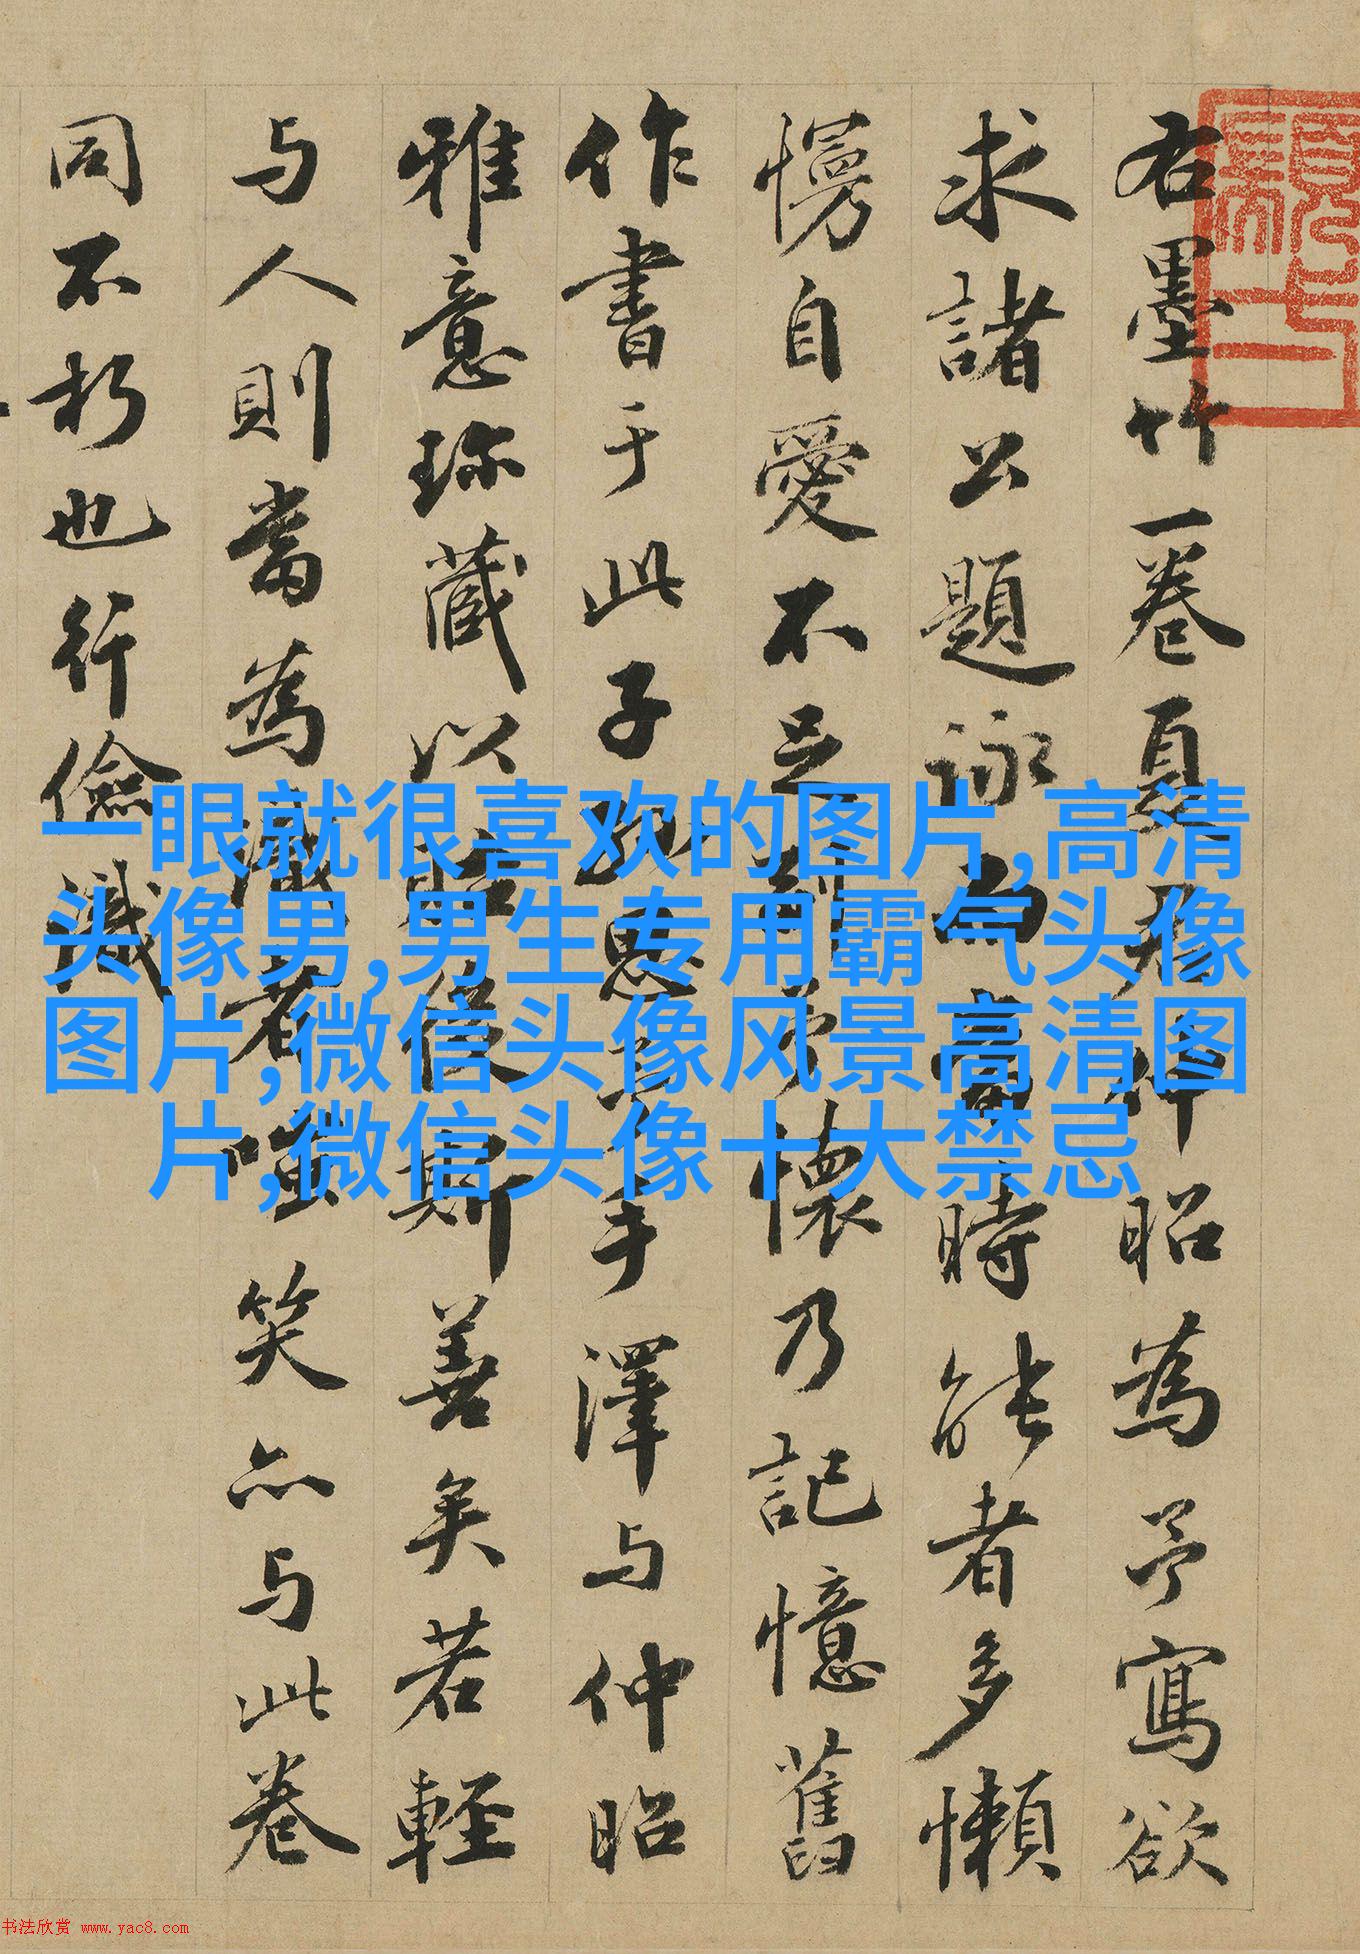 右墨竹一卷夏仲昭為予寫欲
求諸公題詠而當時能者多懶
慢自愛不足予懷乃記憶舊
作書于此子思手澤与仲昭
雅意珍藏以貽後斯善矣若輕
与人則當為識者嗤笑亦与此卷
同不朽也行儉識
一眼就很喜欢的图片,高清
头像男,男生专用霸气头像
图片,微信头像风景高清图
片,微信头像十大禁忌
书法欣赏 www.yac8.com